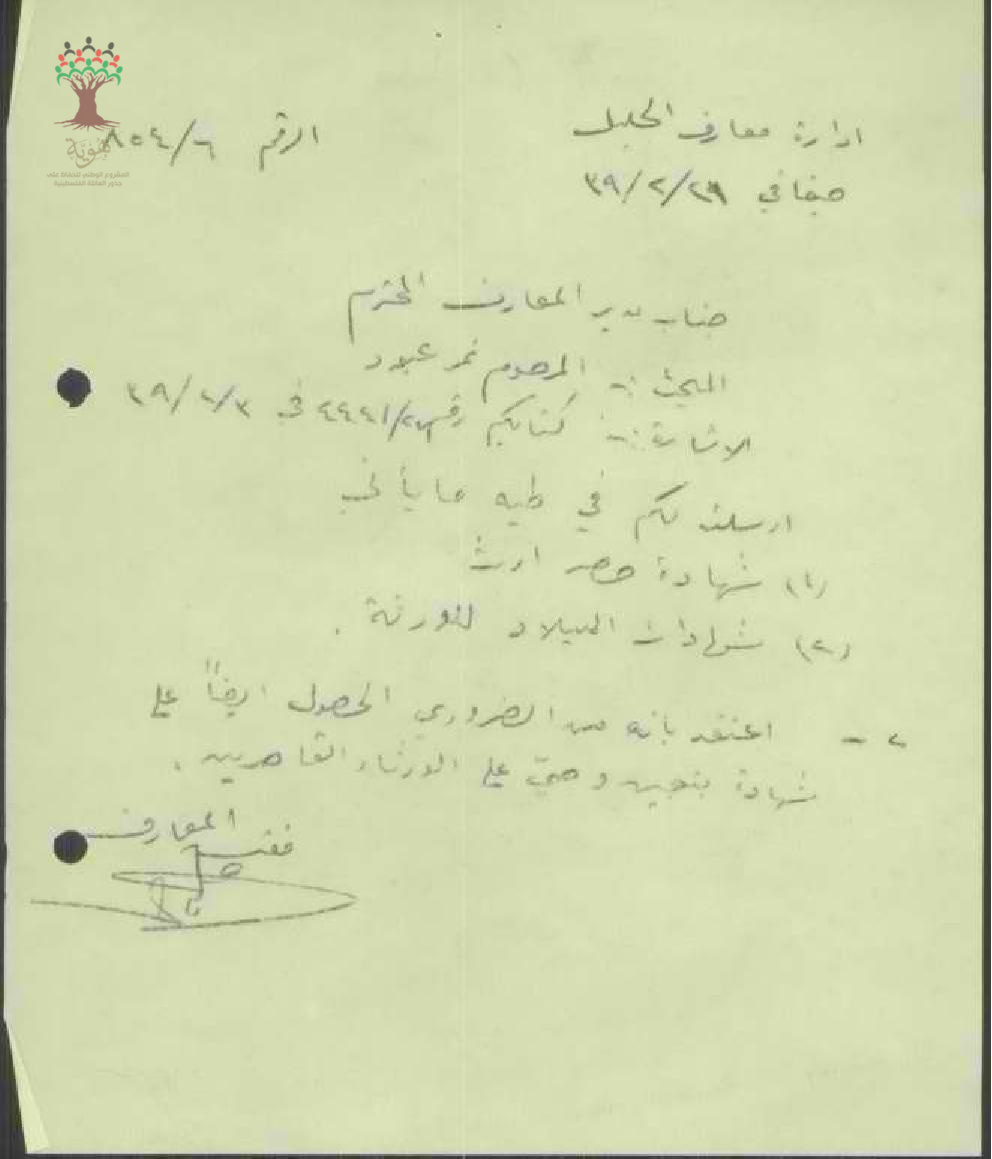 ادارة معارف الجليل
الرقم ٨٥٤/٦
حيفا في ٣٩/٢/٢٩
هوية
المشروع الوطني للحفاظ على
جذور العائلة الفلسطينية
جناب مدير المعارف المحترم
المبحث :- المرحوم نمر عباد
الاشارة :- كتابكم رقم في ٣٩/٢/٣
ارسلت لكم في طيه ما يأتي
(١) شهادة حصر ارث
(٢) شهادات الميلاد للورثة .
٢ - اعتقد بانه من الضروري الحصول ايضاً على
شهادة بتعيين وصيّ على الورثاء القاصرين .
مفتش المعارف